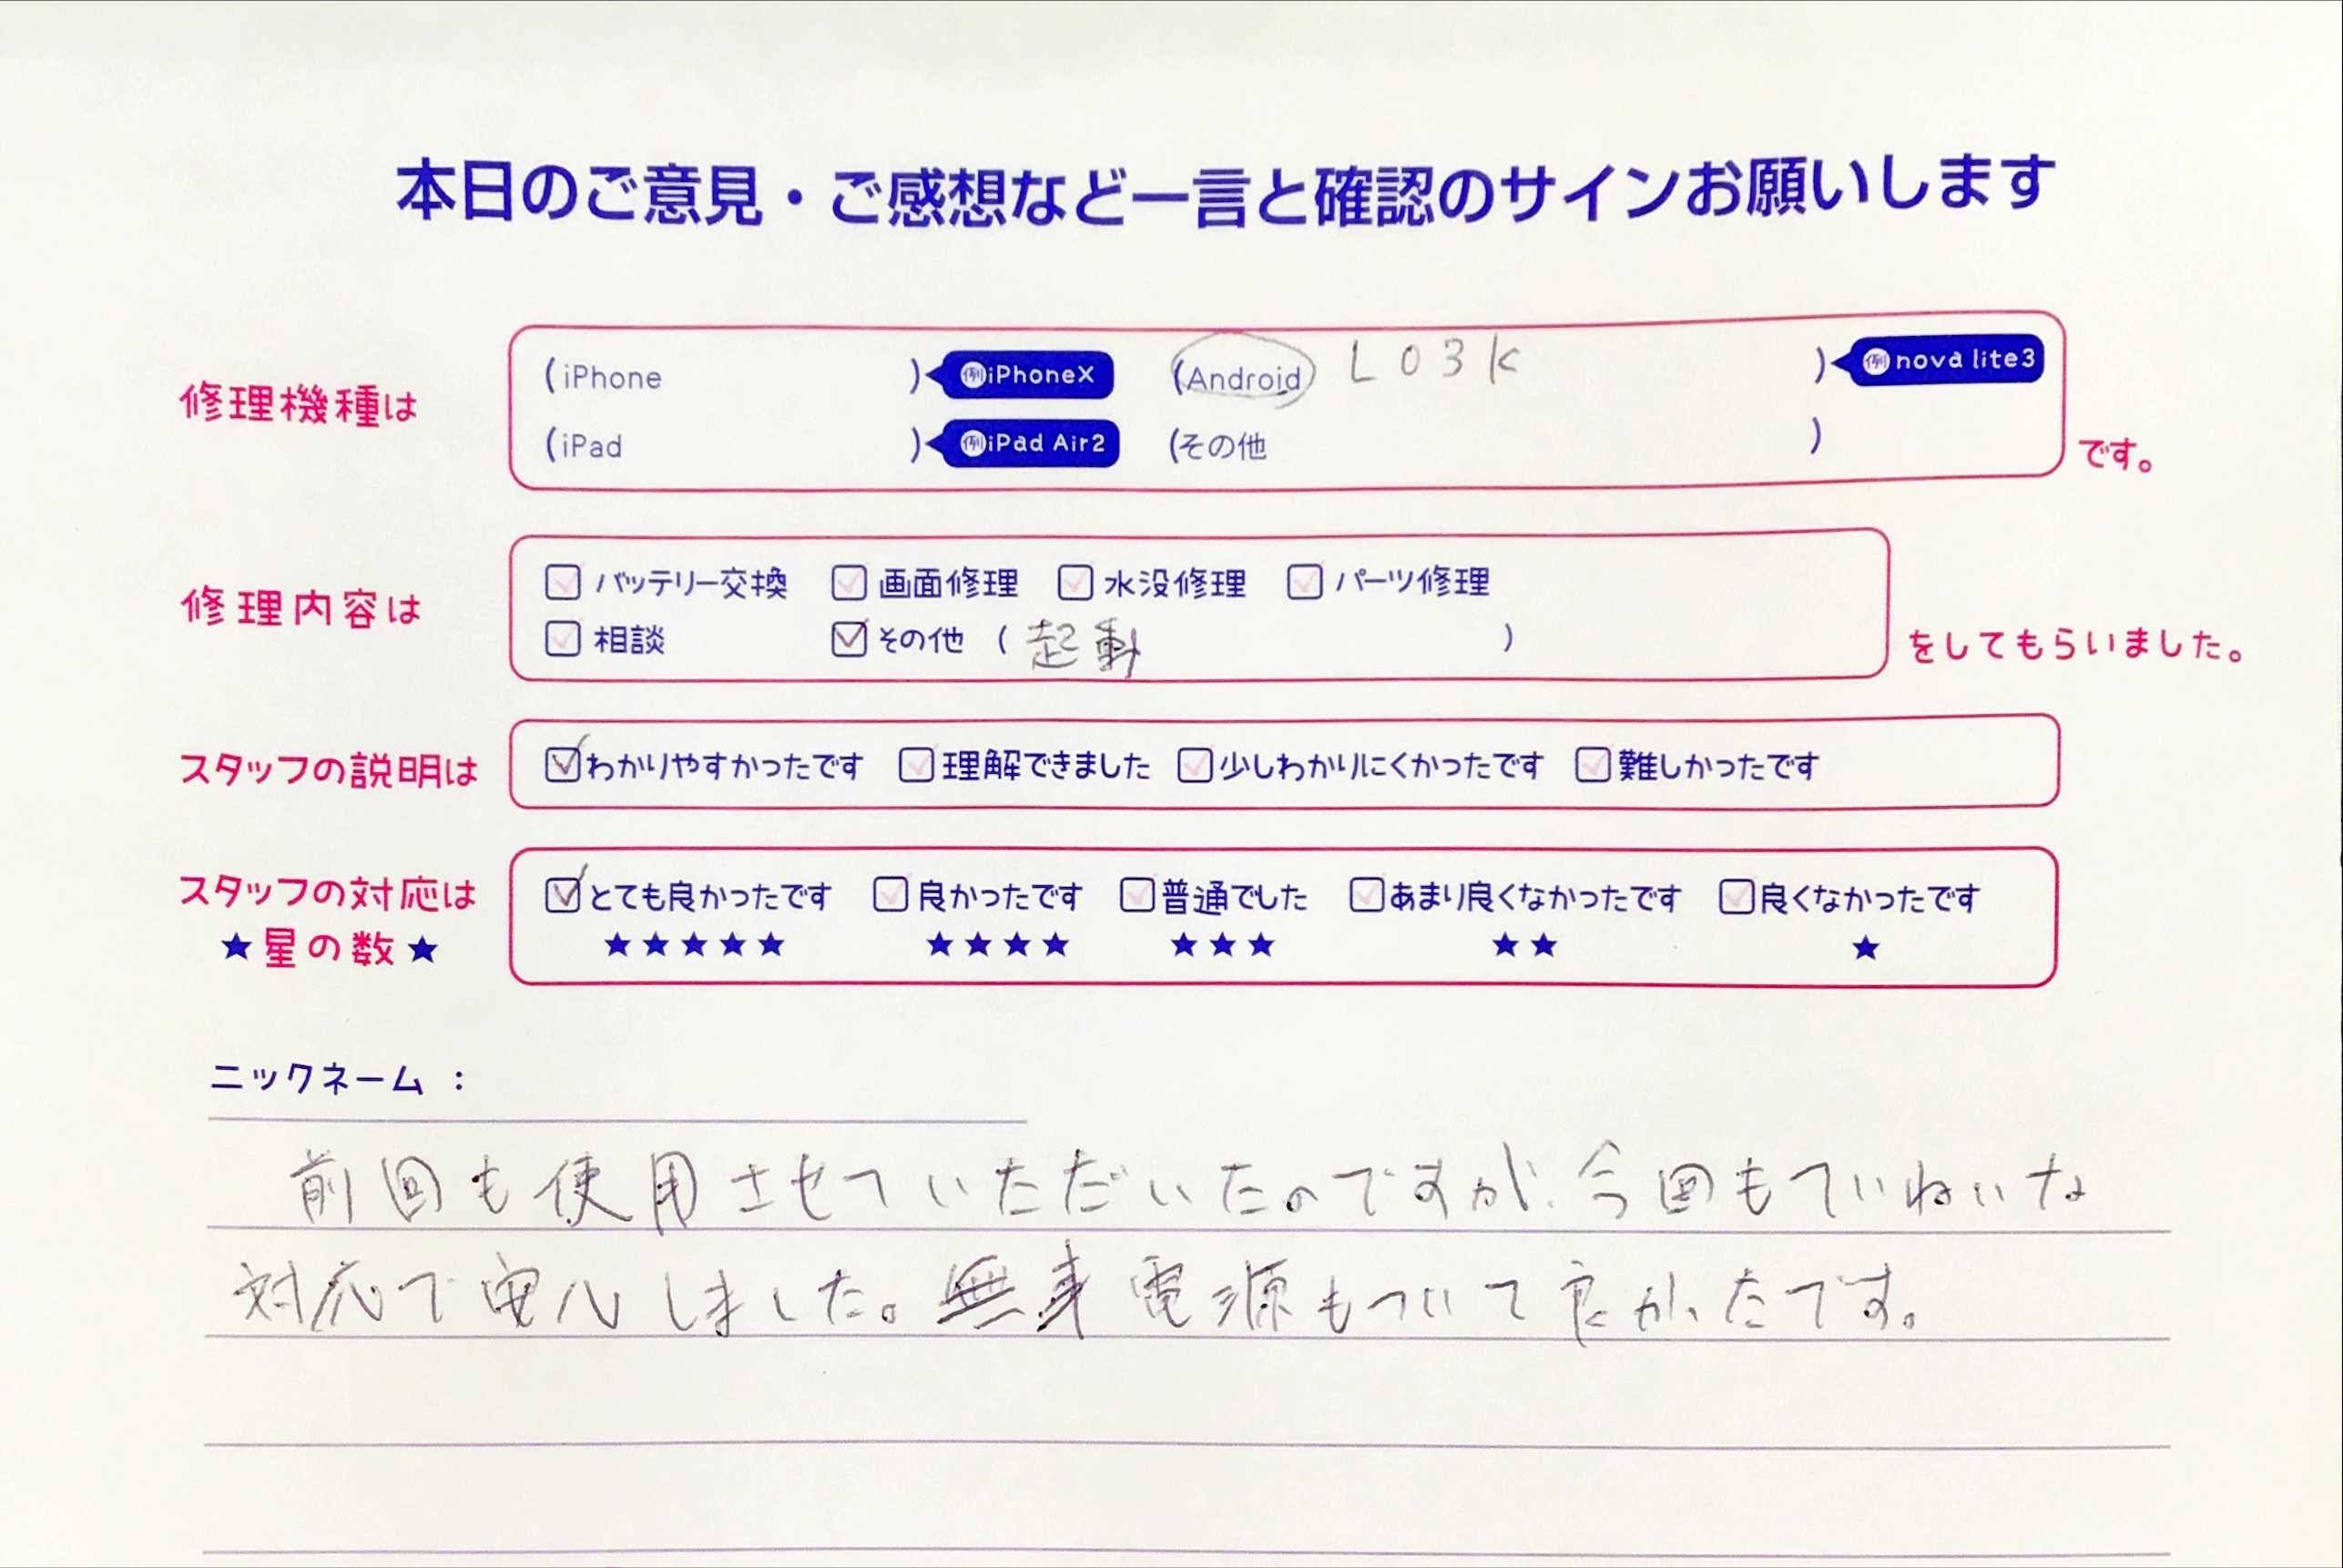 本日のご意見・ご感想など一言と確認のサインお願いします
修理機種は
(iPhone ) 例iPhoneX (Android L03K ) 例nova lite3
(iPad ) 例iPad Air2 (その他 ) です。
修理内容は
バッテリー交換 画面修理 水没修理 パーツ修理
相談 その他 ( 起動 ) をしてもらいました。
スタッフの説明は わかりやすかったです 理解できました 少しわかりにくかったです 難しかったです
スタッフの対応は とても良かったです 良かったです 普通でした あまり良くなかったです 良くなかったです
★星の数★ ★★★★★ ★★★★ ★★★ ★★ ★
ニックネーム :
前回も使用させていただいたのですが、今回もていねいな
対応で安心しました。無事電源もついて良かったです。